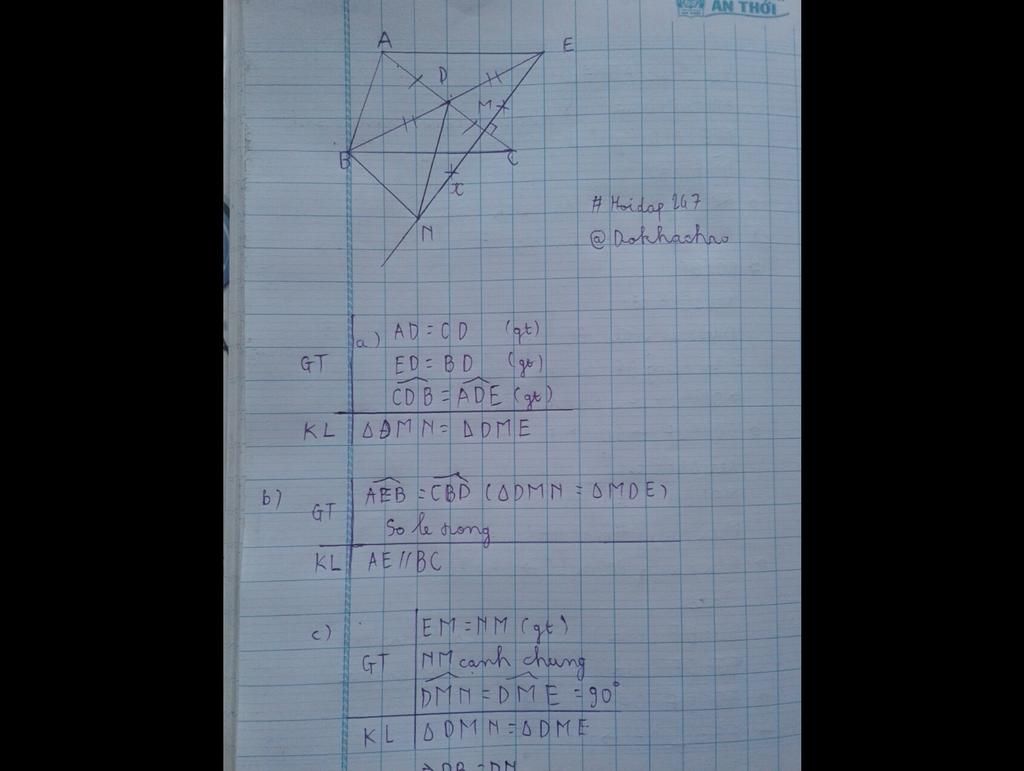 AN THỚI
A
E
D
M
B
C
x
N
# Hoidap 247
@
GT
a) AD = CD (gt)
ED = BD (gt)
CDB = ADE (gt)
KL ΔDMN = ΔDME
b) GT
AEB = CBD (ΔDMN = ΔMDE)
So le trong
KL AE // BC
c) GT
EM = NM (gt)
NM cạnh chung
DMN = DME = 90°
KL ΔDMN = ΔDME